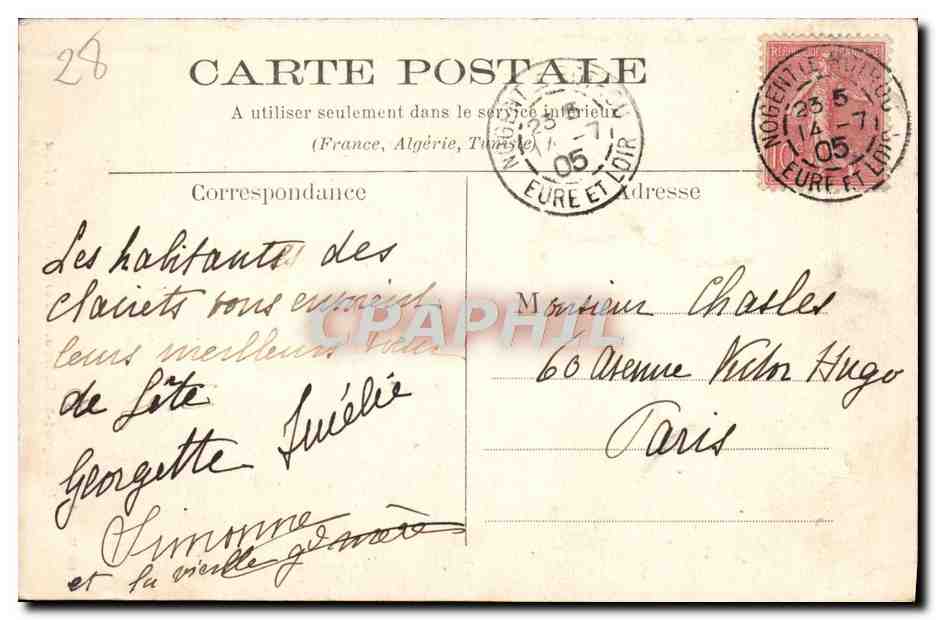 28
CARTE POSTALE
A utiliser seulement dans le service intérieur
(France, Algérie, Tunisie)
NOGENT LE ROTROU
23 5
14 -7
05
EURE ET LOIR
NOGENT LE ROTROU
23 5
14 -7
05
EURE ET LOIR
Correspondance
Adresse
Les habitants des
Clairets vous envoient
leurs meilleurs vœux
de fête
Georgette Amélie
Simonne
et la vieille gd mère
Monsieur Chasles
60 avenue Victor Hugo
Paris
CPAPHIL